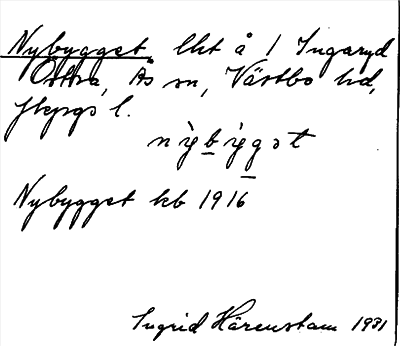 Nybygget, lht å 1 Ingaryd
Östra, Ås sn, Västbo hd,
Jkpgs l.
nỳbỳgət
Nybygget kb 1916
Ingrid Härenstam 1931